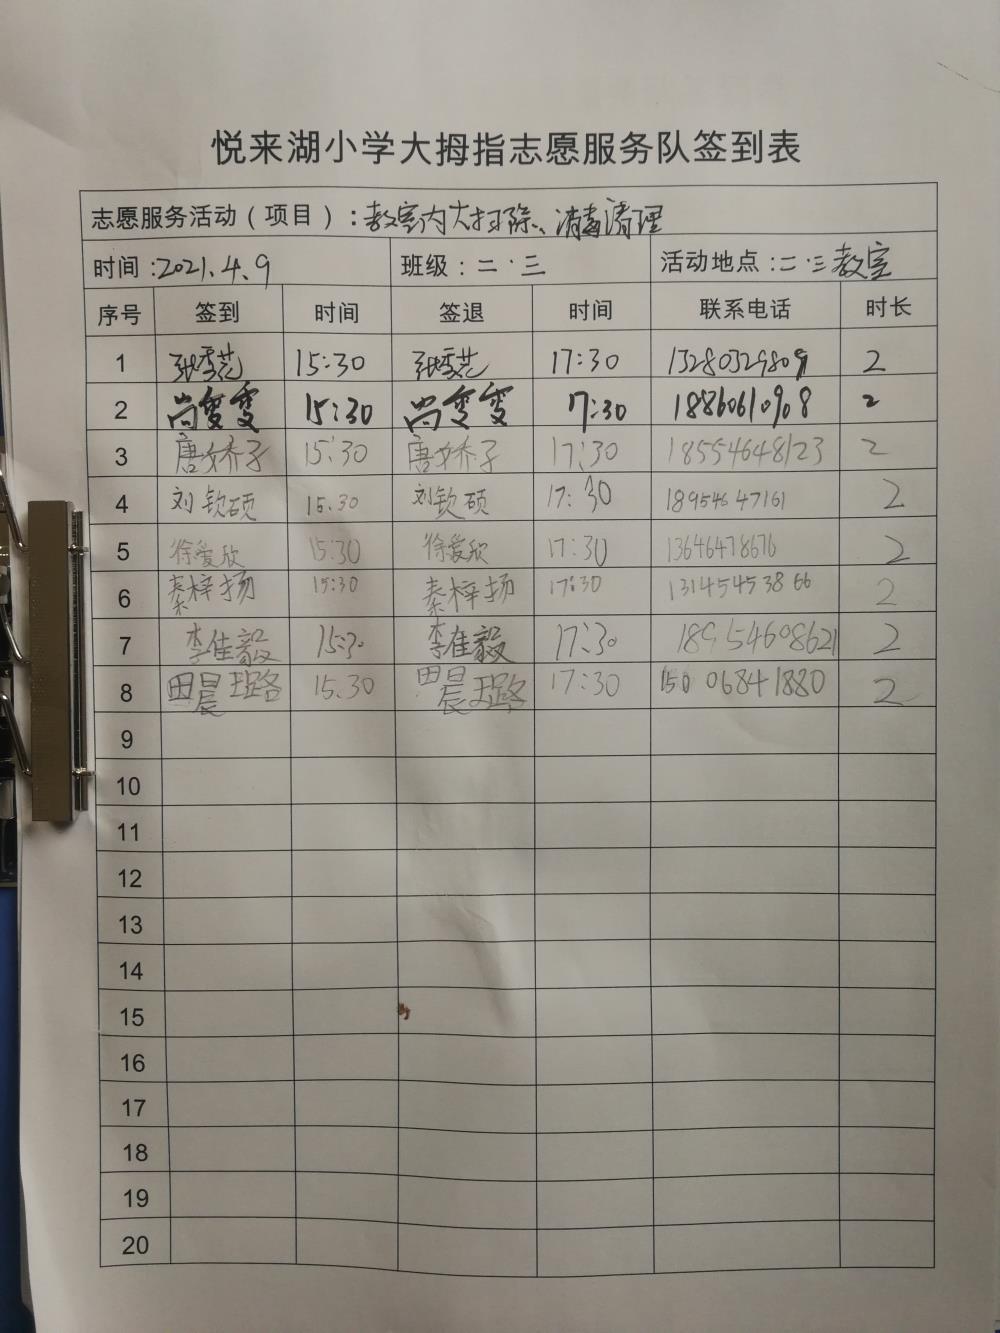 悦来湖小学大拇指志愿服务队签到表
志愿服务活动（项目）：教室内大扫除、消毒清理
时间：2021.4.9 班级：二·三 活动地点：二·三教室
序号 签到 时间 签退 时间 联系电话 时长
1 张雪芷 15:30 张雪芷 17:30 13280329809 2
2 尚雯雯 15:30 尚雯雯 17:30 18860610908 2
3 唐娇子 15:30 唐娇子 17:30 18554648123 2
4 刘钦硕 15.30 刘钦硕 17:30 18954647161 2
5 徐爱欣 15:30 徐爱欣 17:30 13646478676 2
6 秦梓扬 15:30 秦梓扬 17:30 13145453866 2
7 李佳毅 15:30 李佳毅 17:30 18954608621 2
8 田晨璐 15.30 田晨璐 17:30 15006841880 2
9
10
11
12
13
14
15
16
17
18
19
20